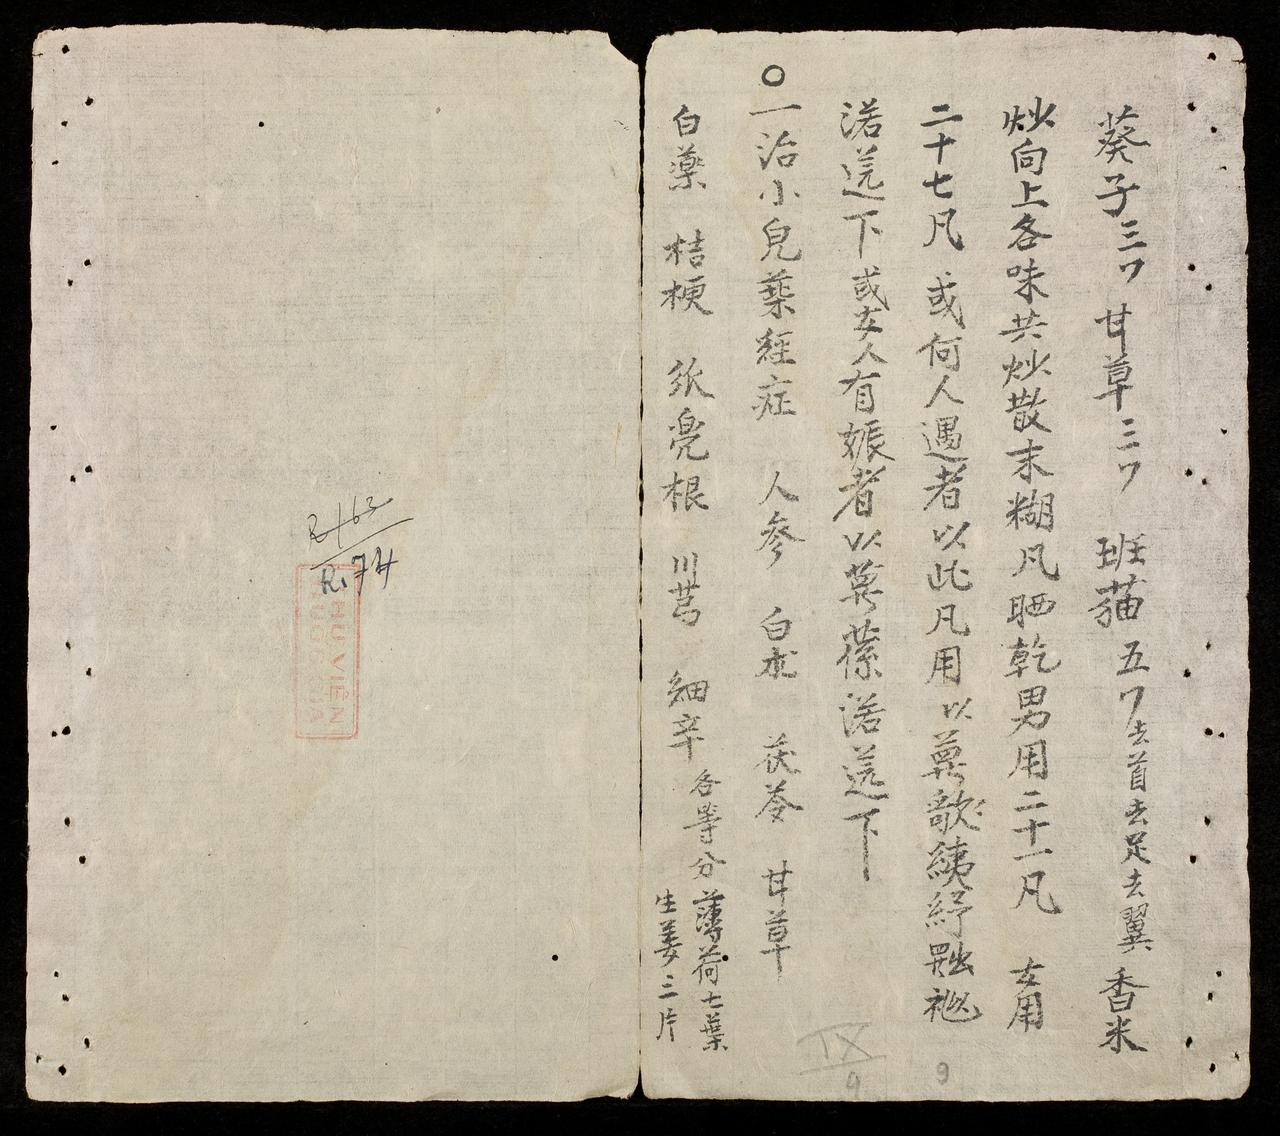 葵子三ワ 甘草三ワ 班猫五ワ去首去足去翼 香米
炒向上各味共炒散末糊凡晒乾男用二十一凡 女用
二十七凡 或何人遇者以此凡用以
渃 下或女人有娠者以 渃 下
○一治小兒藥經症 人參 白朮 茯苓 甘草
白藥 桔梗 紙亮根 川芎 細辛 各等分 薄荷七葉
生姜三片
R. 74
THƯ VIỆN
IX
9
9